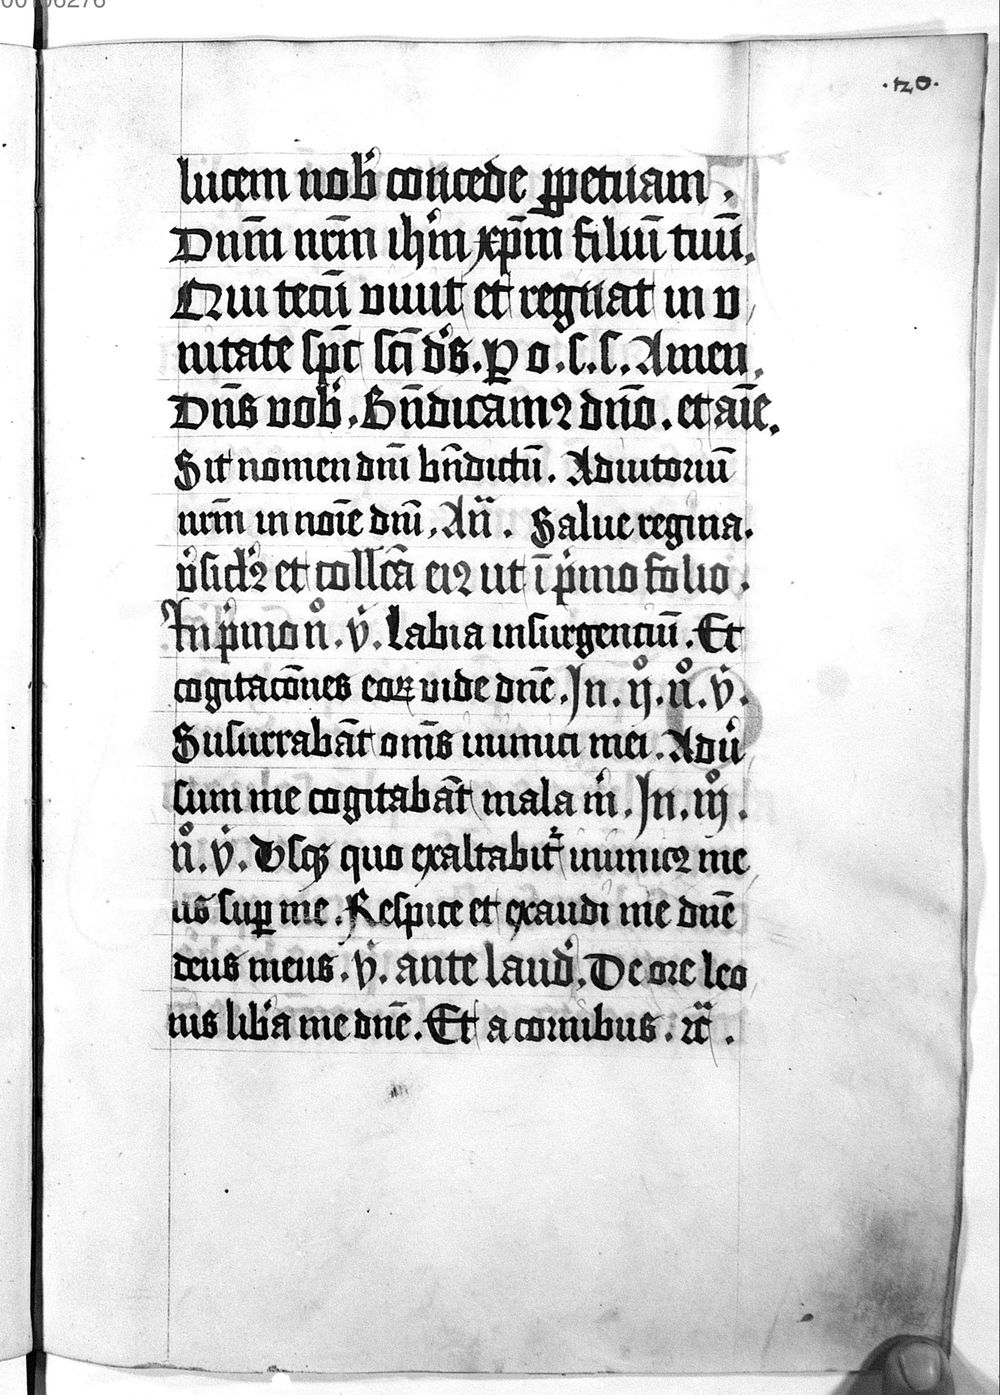 00106276
.120.
lucem nob᷒ concede ꝑpetuam .
Dnm̄ nrm̄ ihm̄ xp̄m filiū tuū.
Qui tecū viuit et regnat in v
nitate sp̄c sc̄i d᷒s . P o . s . s . Amen .
Dn̄s vob᷒ . Bn̄dicamꝰ dn̄o . et aīe .
Sit nomen dn̄i bn̄dictū . Adiutoriū
nrm̄ in noīe dn̄i . Añ . Salue regina .
v᷒sicl᷒ꝰ et coll̄cā eiꝰ ut ī p͛imo folio .
In p͛imo n̊ . v̇ . Labia insurgenciū . Et
cogitacōnes eoꝝ vide dn̄e . In . ij̊ . n̊ . v̇ .
Susurrabāt om̄s inimici mei . Adu᷒
sum me cogitabāt mala m̄ . In . iij̊ .
n̊ . v̇ . Vsqꝫ quo exaltabit᷒ inimicꝰ me
us suꝑ me . Respice et exaudi me dn̄e
deus meus . v̇ . ante laud᷒ . De ore leo
nis lib᷒a me dn̄e . Et a cornibus . ꝛc̄ .